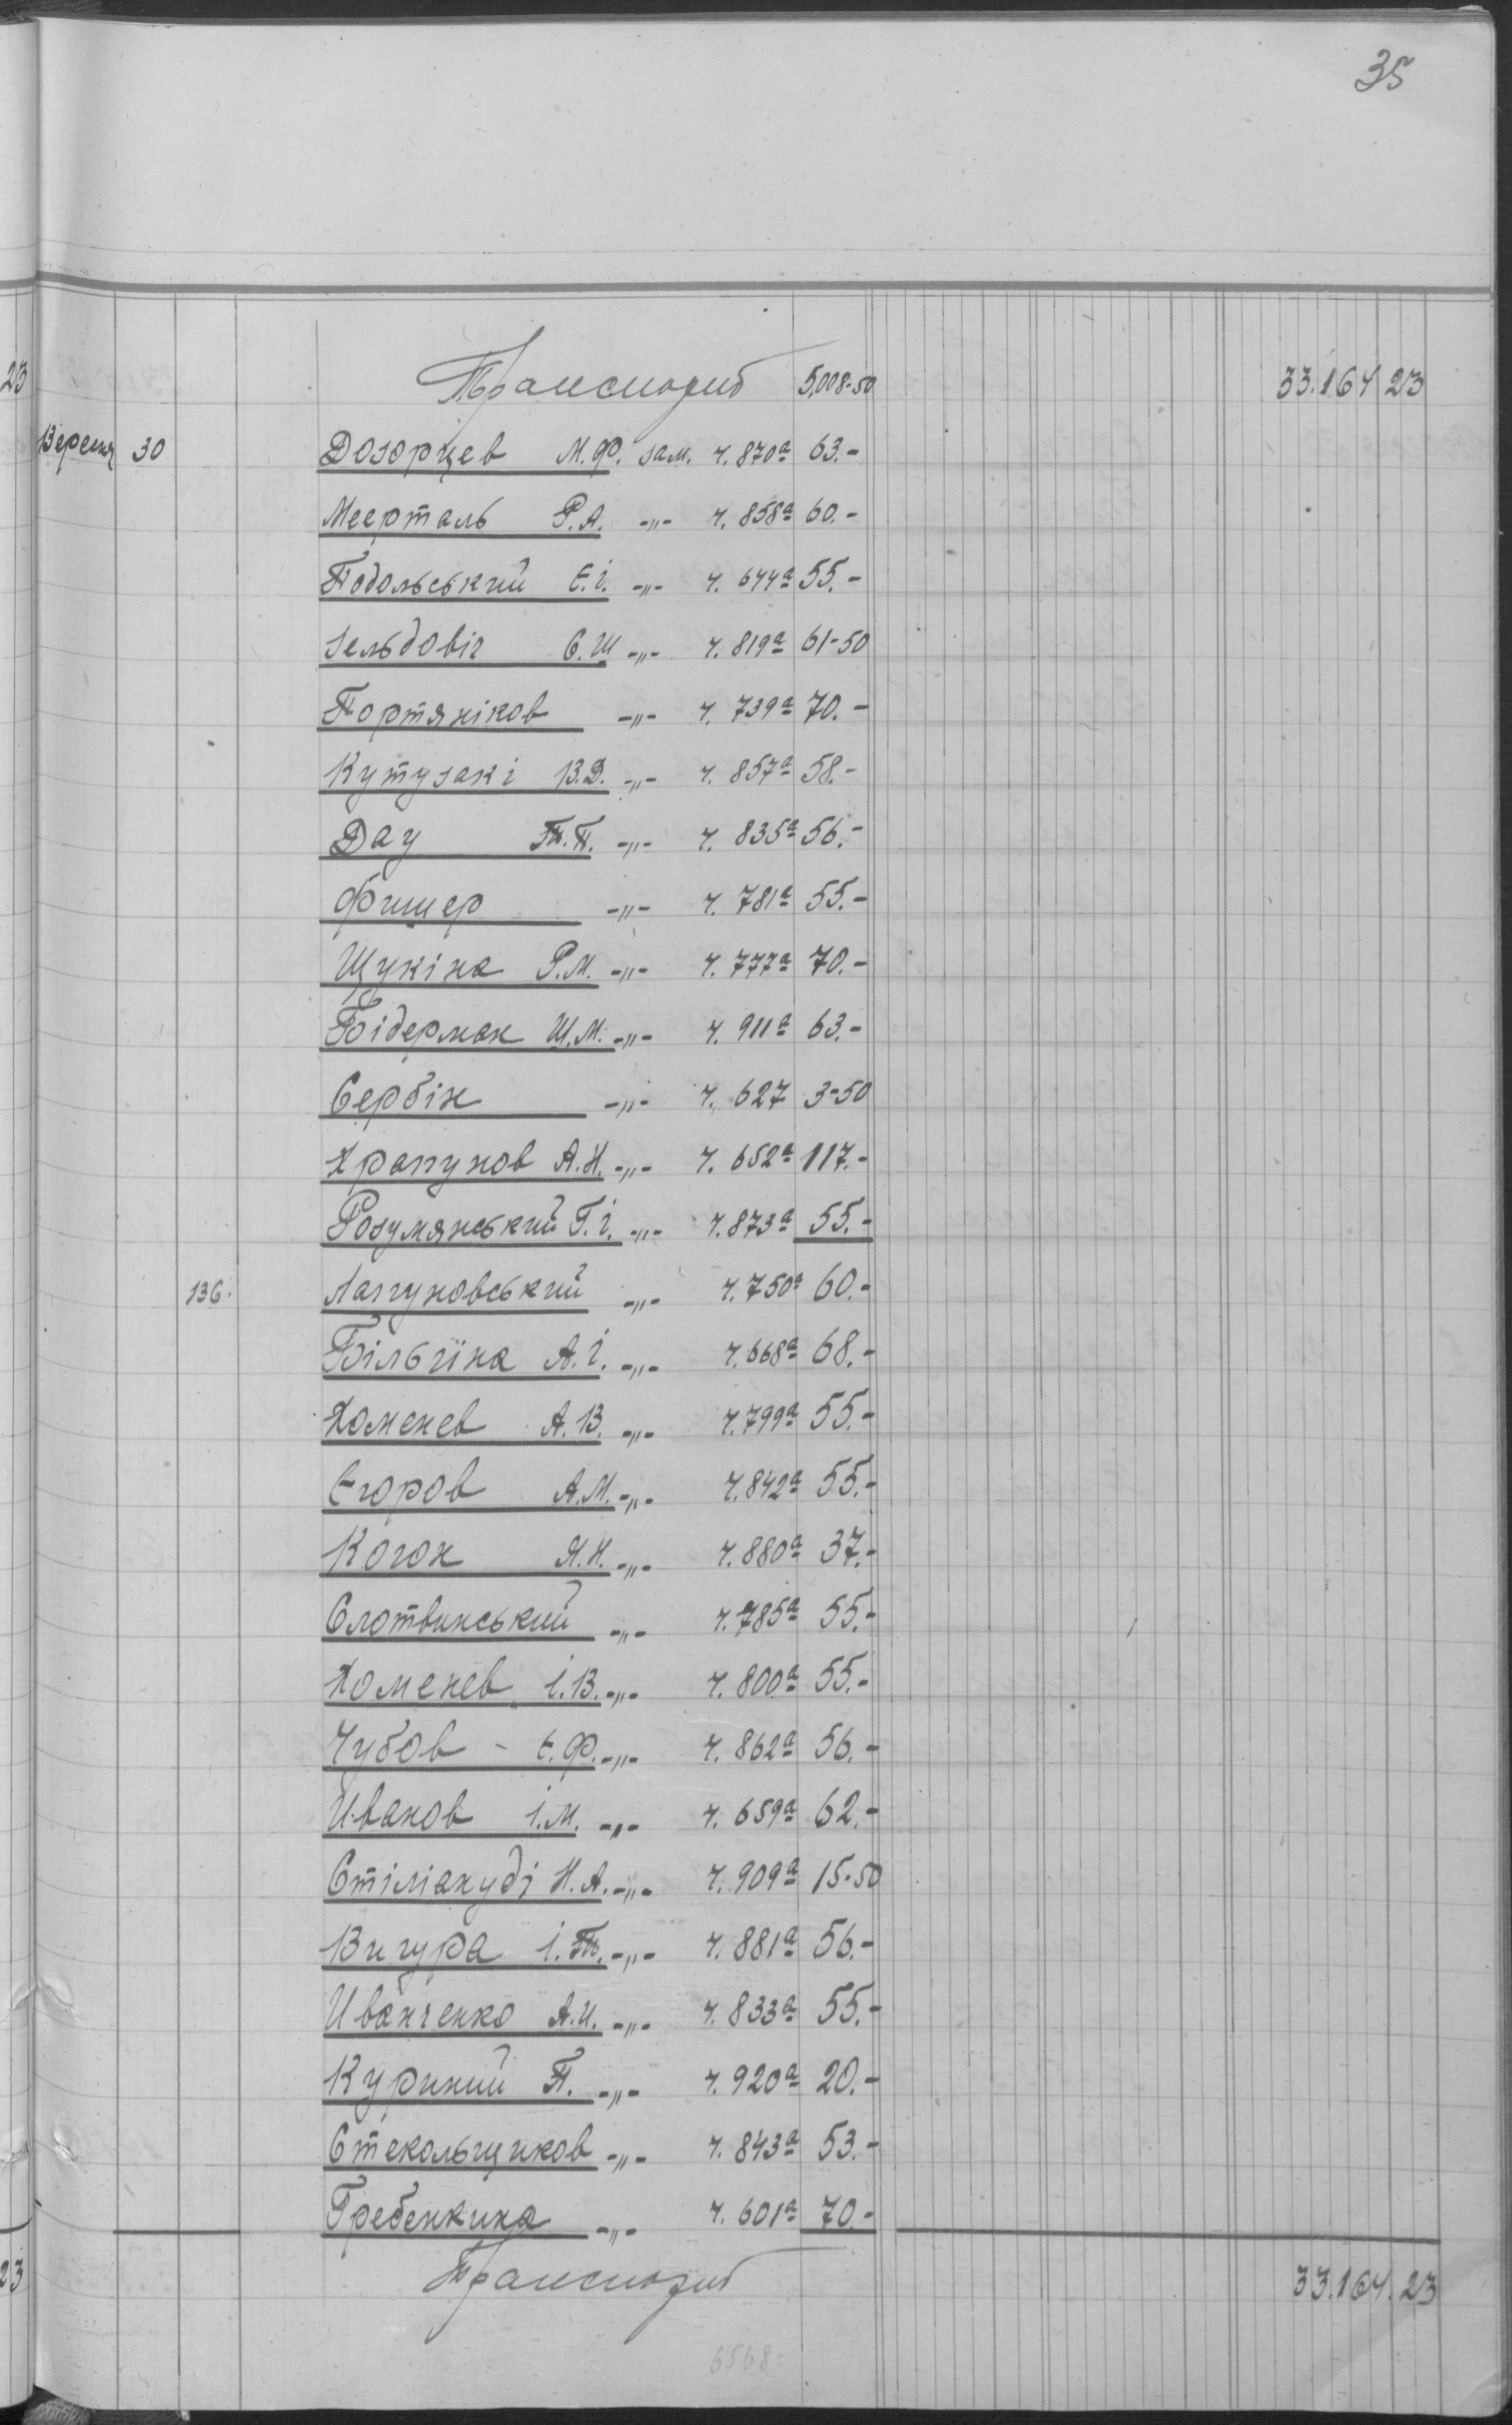 35
Транспорт 5,008-50 33.164 23
Вересня 30 Дозорцев М.Ф. зам. ч. 870а 63.-
Меерталь Р.А. -„- ч. 858а 60.-
Подольський Є.і. -„- ч. 644а 55.-
Зельдовіч С.Ш -„- ч. 819а 61-50
Портяніков -„- ч. 739а 70.-
Кутузакі В.Д. -„- ч. 857а 58.-
Дау Т.П. -„- ч. 835а 56.-
Фишер -„- ч. 781а 55.-
Щукіна Р.М. -„- ч. 777а 70.-
Бідерман Ш.М. -„- ч. 911а 63.-
Сербін -„- ч. 627 3-50
Храпунов А.Н. -„- ч. 652а 117.-
Розумянський Г.і. -„- ч. 873а 55.-
136. Лапуновський -„- ч. 750а 60.-
Більгіна А.і. -„- ч. 668а 68.-
Хоменев А.В. -„- ч. 799а 55.-
Єгоров А.М. -„- ч. 842а 55.-
Коган Я.Н. -„- ч. 880а 37.-
Слотвинський -„- ч. 785а 55.-
Хоменев і.В. -„- ч. 800а 55.-
Чубов - Є.Ф. -„- ч. 862а 56.-
Иванов і.М. -„- ч. 659а 62.-
Стіліануді Н.А. -„- ч. 909а 15-50
Вигура і.Т. -„- ч. 881а 56.-
Иванченко А.И. -„- ч. 833а 55.-
Куриний П. -„- ч. 920а 20.-
Стекольщиков -„- ч. 843а 53.-
Гребенкина -„- ч. 601а 70.-
Транспорт 33.164.23
6568